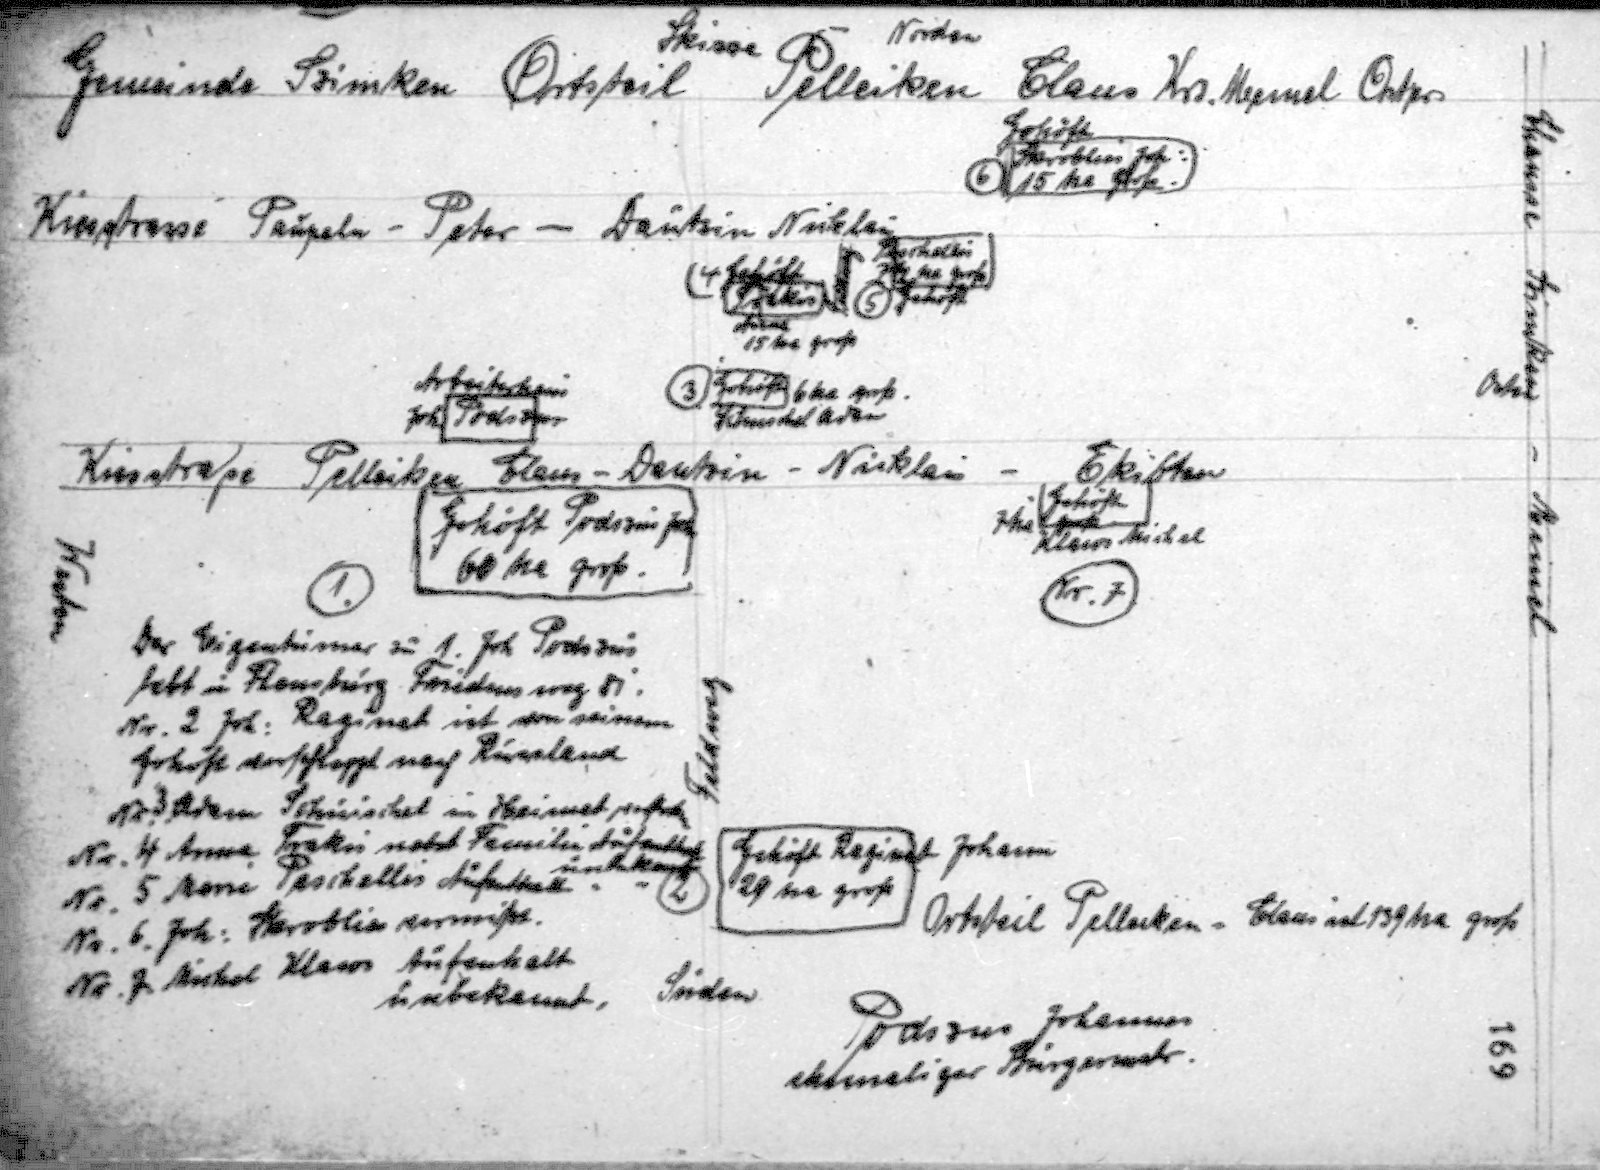 Skizze Norden
Gemeinde Szimken Ortsteil Pelleiken Claus Krs. Memel Ostpr
Gehöft
6 Skroblies Joh:
15 ha groß.
Kiesstrasse Paupeln - Peter - Dautzin Nicklau
Paschellis
ha groß
5 Gehöft
4 Gehöft
Trakis
Anna
15 ha groß
Arbeiterhaus
Joh Podszus
3 Gehöft 6 ha groß.
Adam
Kiesstraße Pelleiken Claus - Dautzin - Nicklau -
Gehöft Podszus Joh
60 ha groß.
1.
Gehöft
7 ha groß
Klaws Michel
Nr. 7
Westen
Osten
Chaussee Szimken - Memel
Der Eigentümer zu 1. Joh Podszus
lebt in Flensburg Friedensweg 81.
Nr. 2 Joh: Raginat ist von seinem
Gehöft verschleppt nach Russland
Nr. 3 Adam in Heimat
Nr. 4 Anna Trakis nebst Familie Aufenthalt
unbekannt
Nr. 5 Marie Paschellis Aufenthalt " "
Nr. 6. Joh: Skroblies vermißt.
Nr. 7 Michel Klaws Aufenthalt
unbekannt.
Feldweg
2 Gehöft Raginat Johann
29 ha groß
Ortsteil Pelleiken - Claus ist 139 ha groß
Süden
Podszus Johannes
ehemaliger Bürgermstr.
169